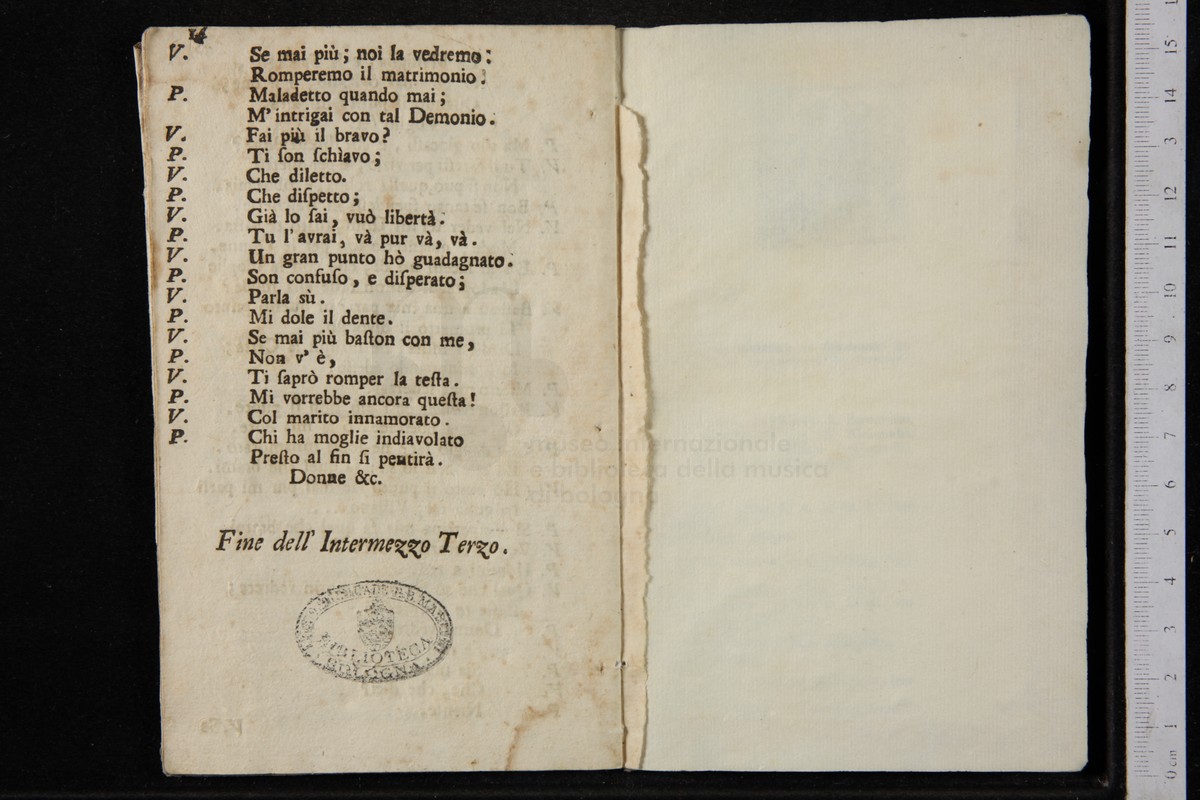 14
V. Se mai più; noi la vedremo:
Romperemo il matrimonio.
P. Maladetto quando mai;
M' intrigai con tal Demonio.
V. Fai più il bravo?
P. Ti ſon ſchiavo;
V. Che diletto.
P. Che diſpetto;
V. Già lo ſai, vuò libertà.
P. Tu l' avrai, và pur và, và.
V. Un gran punto hò guadagnato.
P. Son confuſo, e diſperato;
V. Parla sù.
P. Mi dole il dente.
V. Se mai più baſton con me,
P. Non v' è,
V. Ti ſaprò romper la teſta.
P. Mi vorrebbe ancora queſta!
V. Col marito innamorato.
P. Chi ha moglie indiavolato
Preſto al fin ſi pentirà.
Donne &c.
Fine dell' Intermezzo Terzo.
BIBLIOTECA
BOLOGNA
museo internazionale
e biblioteca della musica
di bologna
0 cm 1 2 3 4 5 6 7 8 9 10 11 12 13 14 15